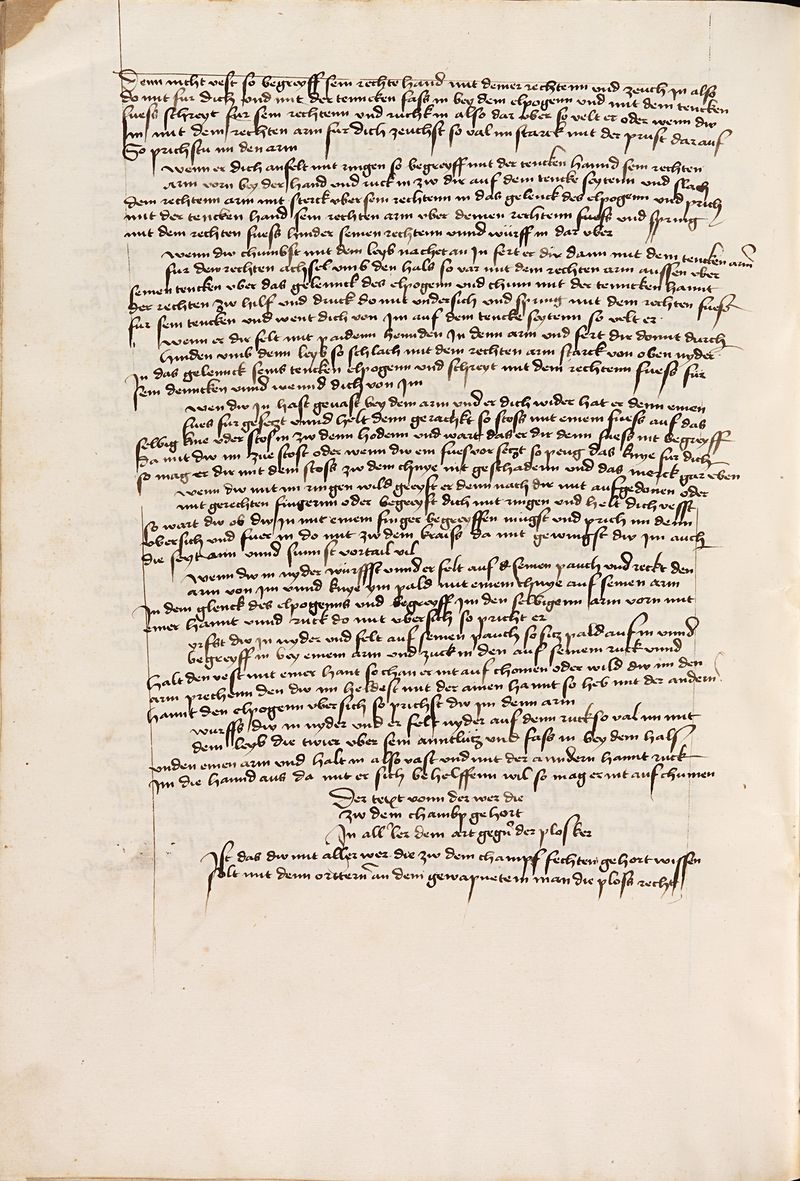 Denn nicht vest so begreyff sein rechte hand mit deiner rechtenn vnd zeuch in also
do mit fur dich vnd mit der tenncken fass in bey dem elpogenn vnd mit dem tencken
fuess schreyt fur sein rechtenn vnd ruckh in also dar vber so velt er oder wenn dw
Im mit dem rechten arm fur dich zeuchst so val im starck mit der prust dar auf
So prichstu im den arm
wenn er dich anfelt mit ringen so begreyff mit der tencken hannd sein rechten
arm vorn bey der hand vnd ruck in zw dir auf dem tencke seytenn vnd slach
dein rechtenn arm mit sterck vber sein rechtenn in das gelenck des elpogenn vnd prich
mit der tencken hand sein rechten arm vber deinen rechtenn fuess vnd spring
mit dem rechten fuess hinder seinen rechtenn vnnd würff in dar vber
wenn dw chumbst mit dem leyb nachet an In fert er dir dann mit dem tencken arm
fur dein rechten achsel vmb den hals so var mit dem rechten arm aussen vber
seinen tencken vber das gelennck des elpogenn vnd chum mit der tenncken hannt
der rechten zw hilf vnd druck do mit vndersich vnd spring mit dem rechten fuess
fur sein tencken vnd went dich von Im auf dem tencke seytenn so velt er
wenn er dir felt mit paidenn hennden In denn arm vnd fert dir domit durch
hinden vmb denn leyb so schlach mit dem rechten arm starck von oben nyder
In das gelennck seins tencken elpogenn vnd schreyt mit dem rechtenn fuess für
sein denncken vnnd wennd dich von im
wen dw in hast gevast bey dem arm vnd er dich wider hat er denn einen
fuess für gesetzt vnnd helt denn gerackt so stoss mit einem fuess auf das
selbig knie oder stos in zw denn hodenn vnd wart das er dir denn fuess nit begreyff
da mit dw im zue stost oder wenn dw ein fues vor setzt so peug das knye für dich
so mag er dir mit dem stoss zw dem chnye nit geschadenn vnd das merck gar eben
wenn dw mit im ringen wild greyft er denn nach dir mit aufgedonen oder
mit gerechten fingernn oder begreyft dich mit ringen vnd helt dich vesst
so wart dw ob dw in mit einem finger begreyffen mügst vnd prich im denn
vbersich vnd fuer in do mit zw dem kraiss da mit gewingst dw im auch
die seyt ann vnnd sunst vortail vil
wenn dw in nyder würffst vnnd er felt auf seinen pauch vnd reckt den
arm von im vnnd knye ym pald mit einem chnye auf seinen arm
In dem glenck des elpogenns vnd begreyff im den selbigenn arm vorn mit
einer hannt vnnd ruck do mit vbersich so pricht er
wrfst dw in nyder vnd felt auf seinen pauch so sitz pald auf in vnnd
begreyff in bey einem arm vnd zuck in den auf seinem ruck vnnd
halt den vest mit einer hant so chan er nit auf chomen oder wild dw im den
arm prechenn den dw im heldest mit der ainen hannt so heb mit der andern
hannt den elpogenn vbersich so prichst dw im denn arm
wurffs dw in nyder vnd er felt nyder auf denn ruck so val im mit
dem leyb die twier vber sein anntlütz vnd fass in bey dem hals
vnden einen arm vnd halt in also vast vnd mit der anndern hannt ruck
Im die hannd aus da mit er sich behelffenn wil so mag er nit auf chumen
Der text vonn der wer die
zw dem champ gehort
In all'ler dem art gegn der plosker
Ist das dw mit aller wer die zw dem champf fechten gehort wissen
solt mit denn orttern an dem gewapnetem man die ploss recht